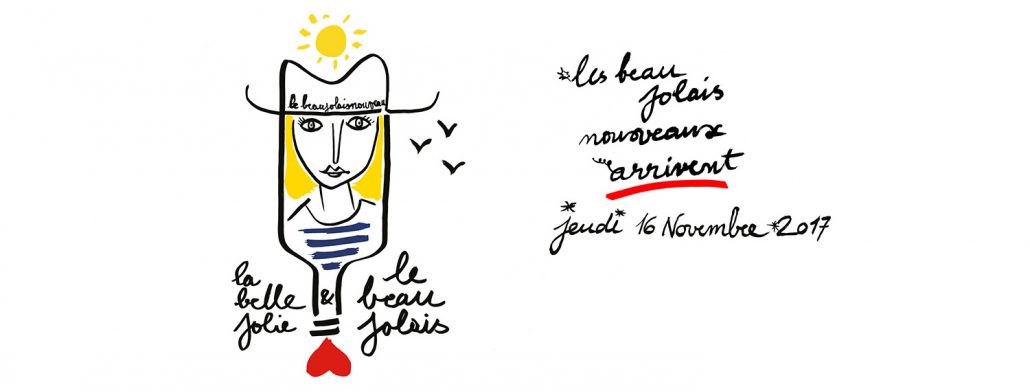 le beaujolais nouveau
la
belle
jolie
&
le
beau
jolais
les beau
jolais
nouveaux
arrivent
jeudi 16 Novembre 2017